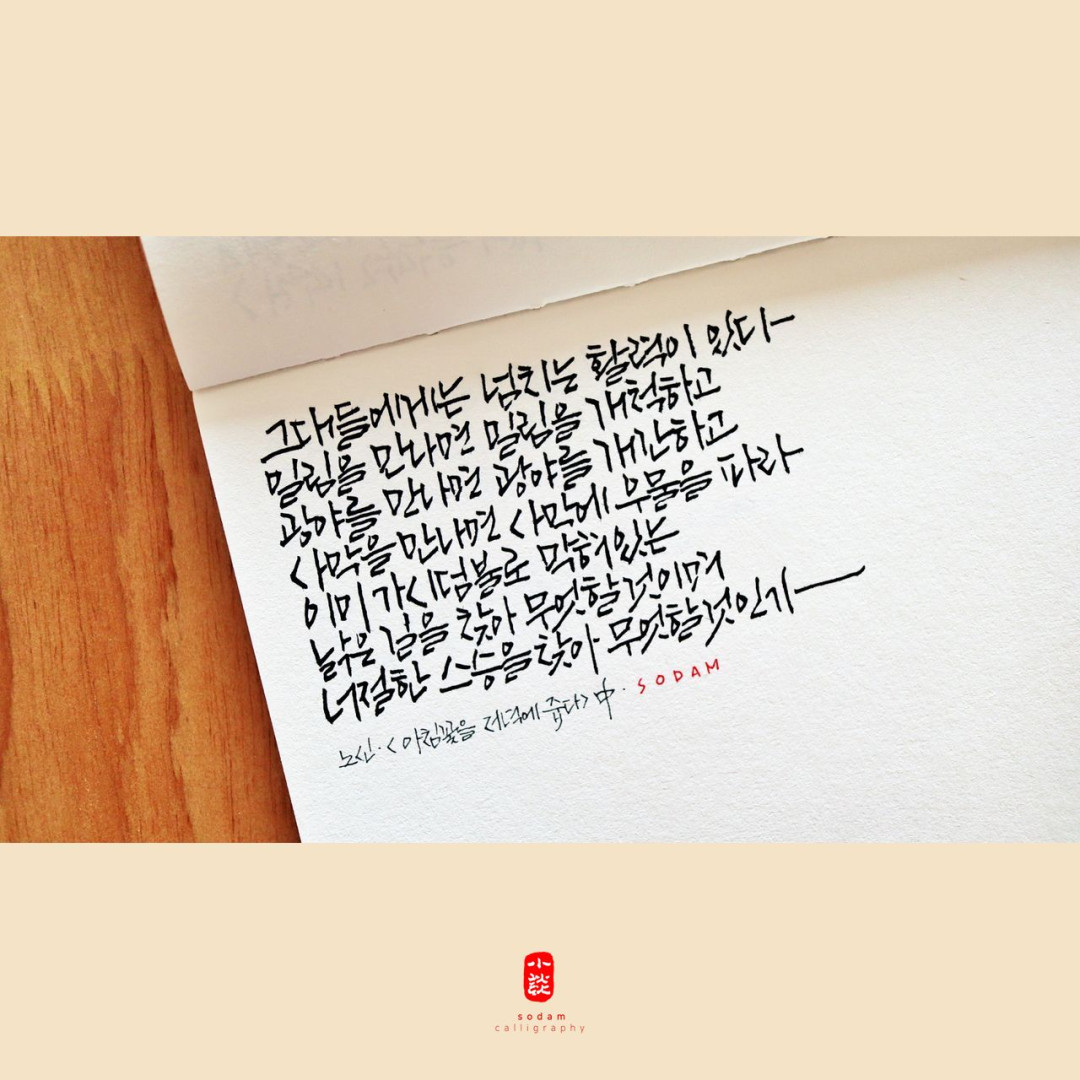 그대들에게는 넘치는 활력이 있다
밀림을 만나면 밀림을 개척하고
광야를 만나면 광야를 개간하고
사막을 만나면 사막에 우물을 파라
이미 가시덤불로 막혀있는
낡은 길을 찾아 무엇할것이며
너절한 스승을 찾아 무엇할것인가
노신·<아침꽃을 저녁에 줍다>中·SODAM
小談
sodam
calligraphy